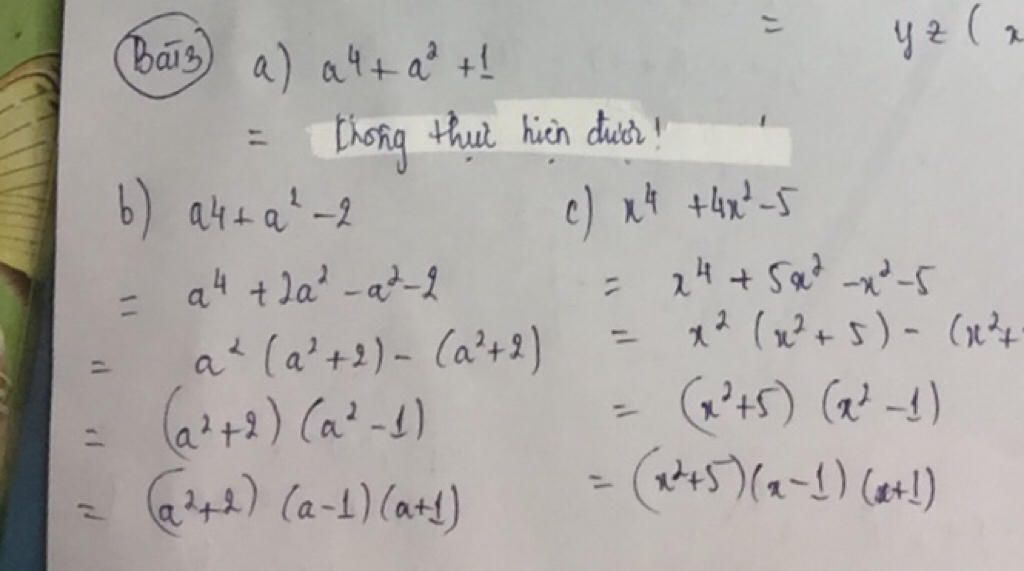 = yz ( x
Bài 3 a) a⁴ + a² + 1
= không thực hiện được!
b) a4 + a² - 2
= a⁴ + 2a² - a² - 2
= a² (a² + 2) - (a² + 2)
= (a² + 2) (a² - 1)
= (a² + 2) (a - 1) (a + 1)
c) x⁴ + 4x² - 5
= x⁴ + 5x² - x² - 5
= x² (x² + 5) - (x² +
= (x² + 5) (x² - 1)
= (x² + 5) (x - 1) (x + 1)